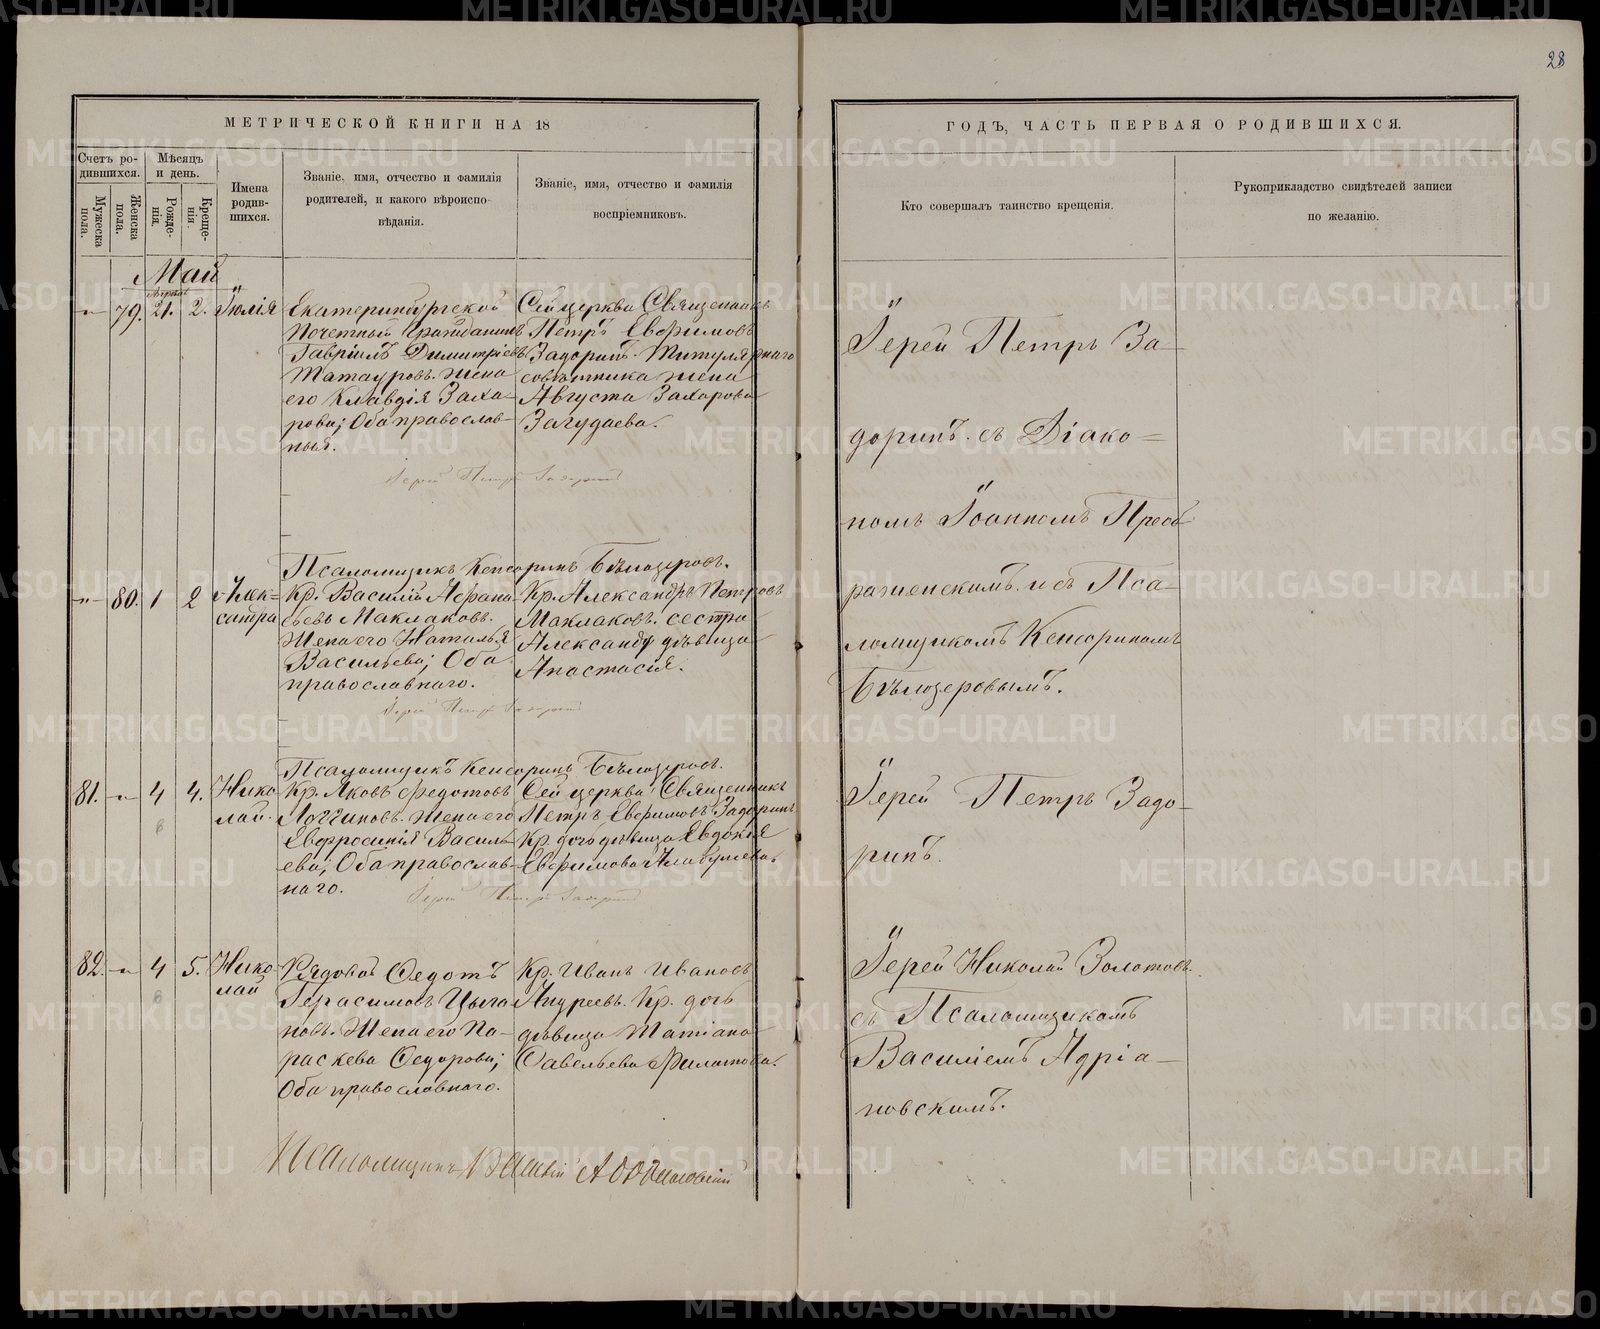 28
МЕТРИЧЕСКОЙ КНИГИ НА 18
Счетъ ро-
дившихся.
Мужеска
пола.
Женска
пола.
Мѣсяцъ
и день.
Рожде-
нія.
Креще-
нія.
Имена
родив-
шихся.
Званіе, имя, отчество и фамилія
родителей, и какого вѣроиспо-
вѣданія.
Званіе, имя, отчество и фамилія
воспріемниковъ.
Май
79. Апрѣля 21. 2. Іюлія
Екатеринбургской
Почетный Гражданинъ
Гавріилъ Димитріевъ
Татауровъ. жена
его Клавдія Заха-
рова; Оба православ-
ныя.
Сей церкви Священникъ
Петръ Евфимовъ
Задоринъ. Титулярнаго
совѣтника жена
Августа Захарова
Загудаева.
Іерей Петръ Задоринъ
Псаломщикъ Кенсоринъ Бѣлозеровъ.
80. 1 2 Алек-
сатра
Кр. Василій Афана-
сьевъ Маклаковъ.
Жена его Наталья
Васильева; Оба
православнаго.
Кр. Александръ Петровъ
Маклаковъ. сестра
Александр дѣвица
Анастасія.
Іерей Петръ Задоринъ
Псаломщикъ Кенсоринъ Бѣлозеровъ.
81. 4 4. Нико
лай.
Кр. Яковъ Федотовъ
Логгиновъ. Жена его
Евфросинія Василь
ева; Оба православ-
наго.
Сей церкви Священникъ
Петръ Евфимовъ Задоринъ
Кр. дочь дѣвица Евдокія
Евфимова
Іерей Петръ Задоринъ
82. 4 5. Нико
лай
Рядовой Федотъ
Герасимовъ Цыга
новъ. Жена его Па-
раскева Федорова;
Оба православнаго.
Кр. Иванъ Ивановъ
Андреевъ. Кр. дочь
дѣвица Татіана
Савельева Филатова.
Псаломщикъ Василій Адріановскій
ГОДЪ, ЧАСТЬ ПЕРВАЯ О РОДИВШИХСЯ.
Кто совершалъ таинство крещенія.
Рукоприкладство свидѣтелей записи
по желанію.
Іерей Петръ За-
доринъ. съ Діако-
номъ Іоанномъ Преоб
раженскимъ. и съ Пса-
ломщикомъ Кенсориномъ
Бѣлозеровымъ.
Іерей Петръ Задо-
ринъ.
Іерей Николай Золотовъ.
съ Псаломщикомъ
Василіемъ Адріа-
новскимъ.
METRIKI.GASO-URAL.RU